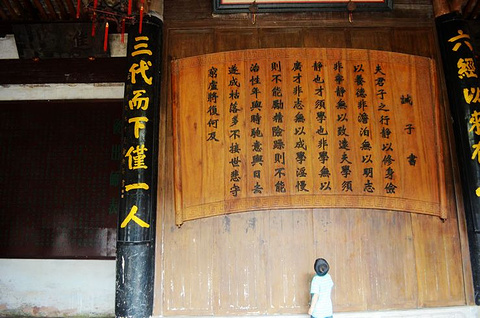 六經以來
誡子書
夫君子之行静以修身儉
以養德非澹泊無以明志
非寧静無以致遠夫學須
静也才須學也非學無以
廣才非志無以成學淫慢
則不能勵精險躁則不能
治性年與時馳意與日去
遂成枯落多不接世悲守
窮廬將復何及
三代而下僅一人